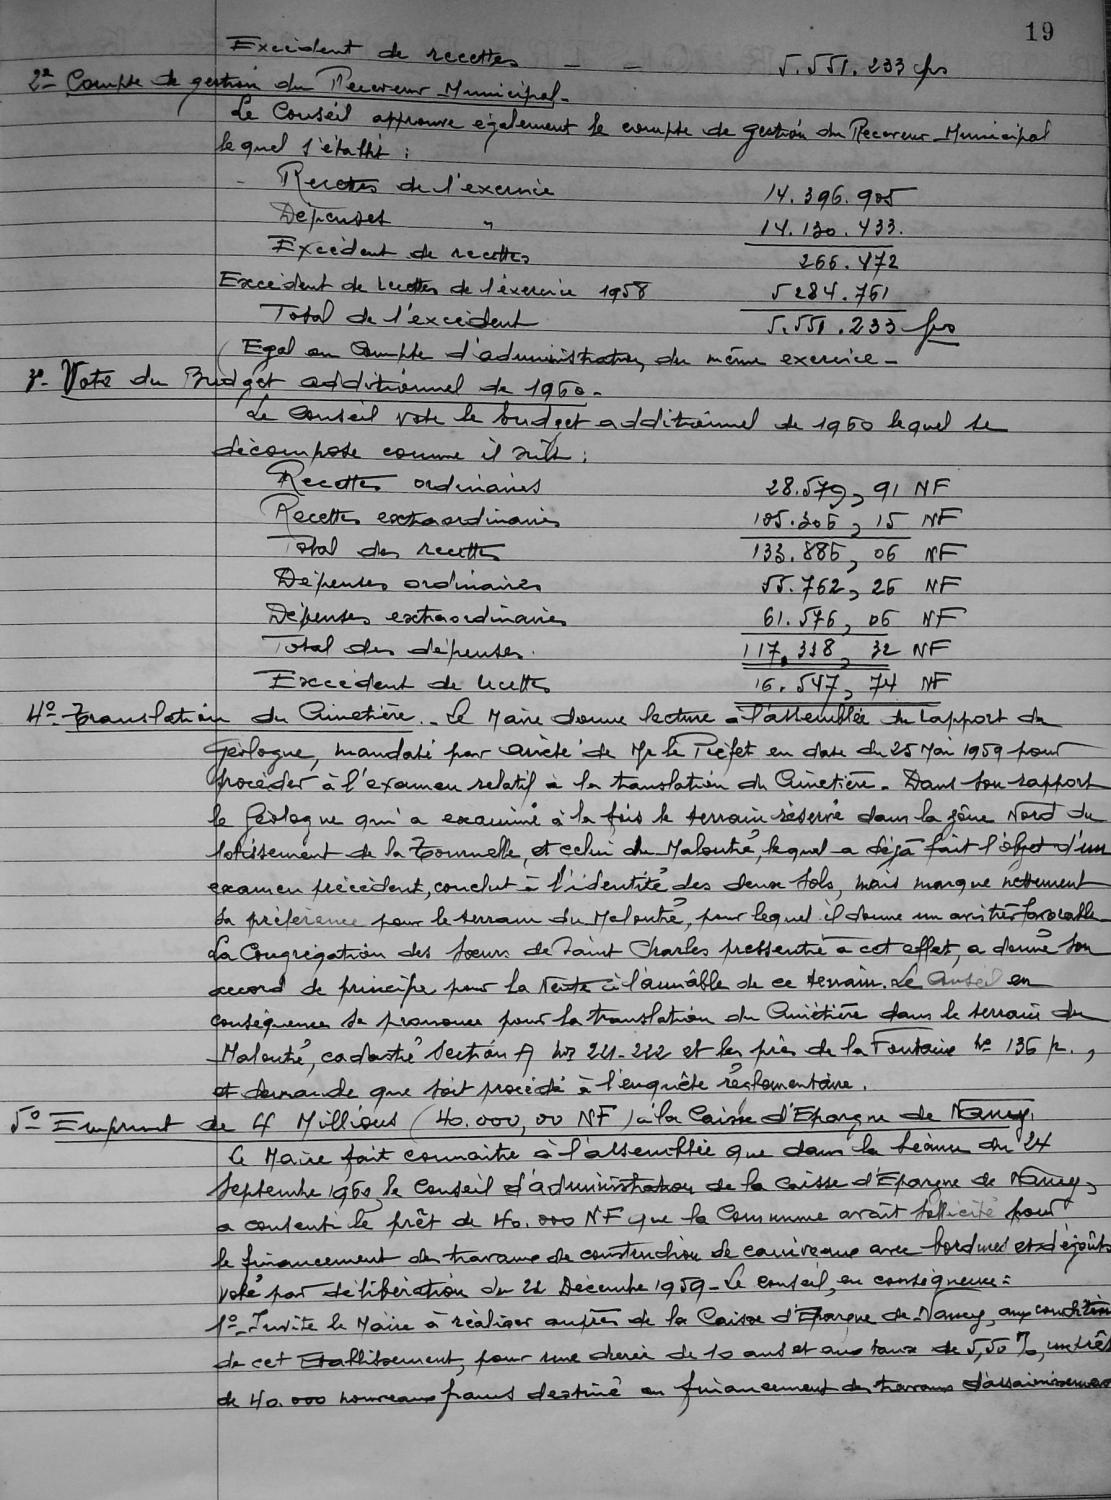 19
Excédent de recettes _ _ 5.551.233 frs
2º- Compte de gestion du Receveur-Municipal-
Le Conseil approuve également le compte de gestion du Receveur-Municipal
lequel s'établit :
- Recettes de l'exercice 14.396.905
Dépenses " 14.130.433.
Excédent de recettes 266.472
Excédent de recettes de l'éxercice 1958 5284.761
Total de l'excédent 5.551.233 frs
Egal au Compte d'administration, du même exercice -
3º- Vote du Budget additionnel de 1960.
Le Conseil vote le budget additionnel de 1960 lequel se
décompose comme il suit :
Recettes ordinaires 28.579, 91 NF
Recettes extraordinaires 105.306, 15 NF
Total des recettes 133.886, 06 NF
Dépenses ordinaires 55.762, 26 NF
Dépenses extraordinaires 61.576, 06 NF
Total des dépenses. 117.338, 32 NF
Excédent de recettes 16.547, 74 NF
4º- Translation du Cimetière.- Le Maire donne lecture à l'assemblée du rapport du
Géologue, mandaté par arrêté de Mr le Préfet en date du 25 Mai 1959 pour
procéder à l'examen relatif à la translation du Cimetière. Dans son rapport
le Géologue qui a examiné à la fois le terrain réservé dans la zône Nord du
lotissement de la Tournelle, et celui du Maloutié, lequel a déjà fait l'objet d'un
examen précédent, conclut à l'identité des deux sols, mais marque nettement
sa préférence pour le terrain du Maloutié, pour lequel il donne un avis très favorable
La Congrégation des Soeurs de Saint Charles pressentie à cet effet, a donné son
accord de principe pour la vente à l'aimable de ce terrain. Le Conseil en
conséquence se prononce pour la translation du Cimetière dans le terrain du
Maloutié, cadastré Section A et les près de la Fontaine Nº 136 p.,
et demande que soit procédé à l'enquête réglementaire.
5º Emprunt de 4 Millions (40.000,00 NF) à la Caisse d'Epargne de Nancy.
Le Maire fait connaitre à l'assemblée que dans la séance du 24
Septembre 1960, le Conseil d'administration de la Caisse d'Epargne de Nancy,
a consenti le prêt de 40.000 NF que la Commune avait sollicité pour
le financement des travaux de construction de caniveaux avec bordures et d'égoûts
voté par délibération du Décembre 1959- Le Conseil, en conséquence :
1º- Invite le Maire à réaliser auprès de la Caisse d'Epargne de Nancy, aux conditions
de cet Etablissement, pour une durée de 10 ans et au taux de 5,50 %, un prêt
de 40.000 nouveaux francs destiné au financement des travaux d'assainissement